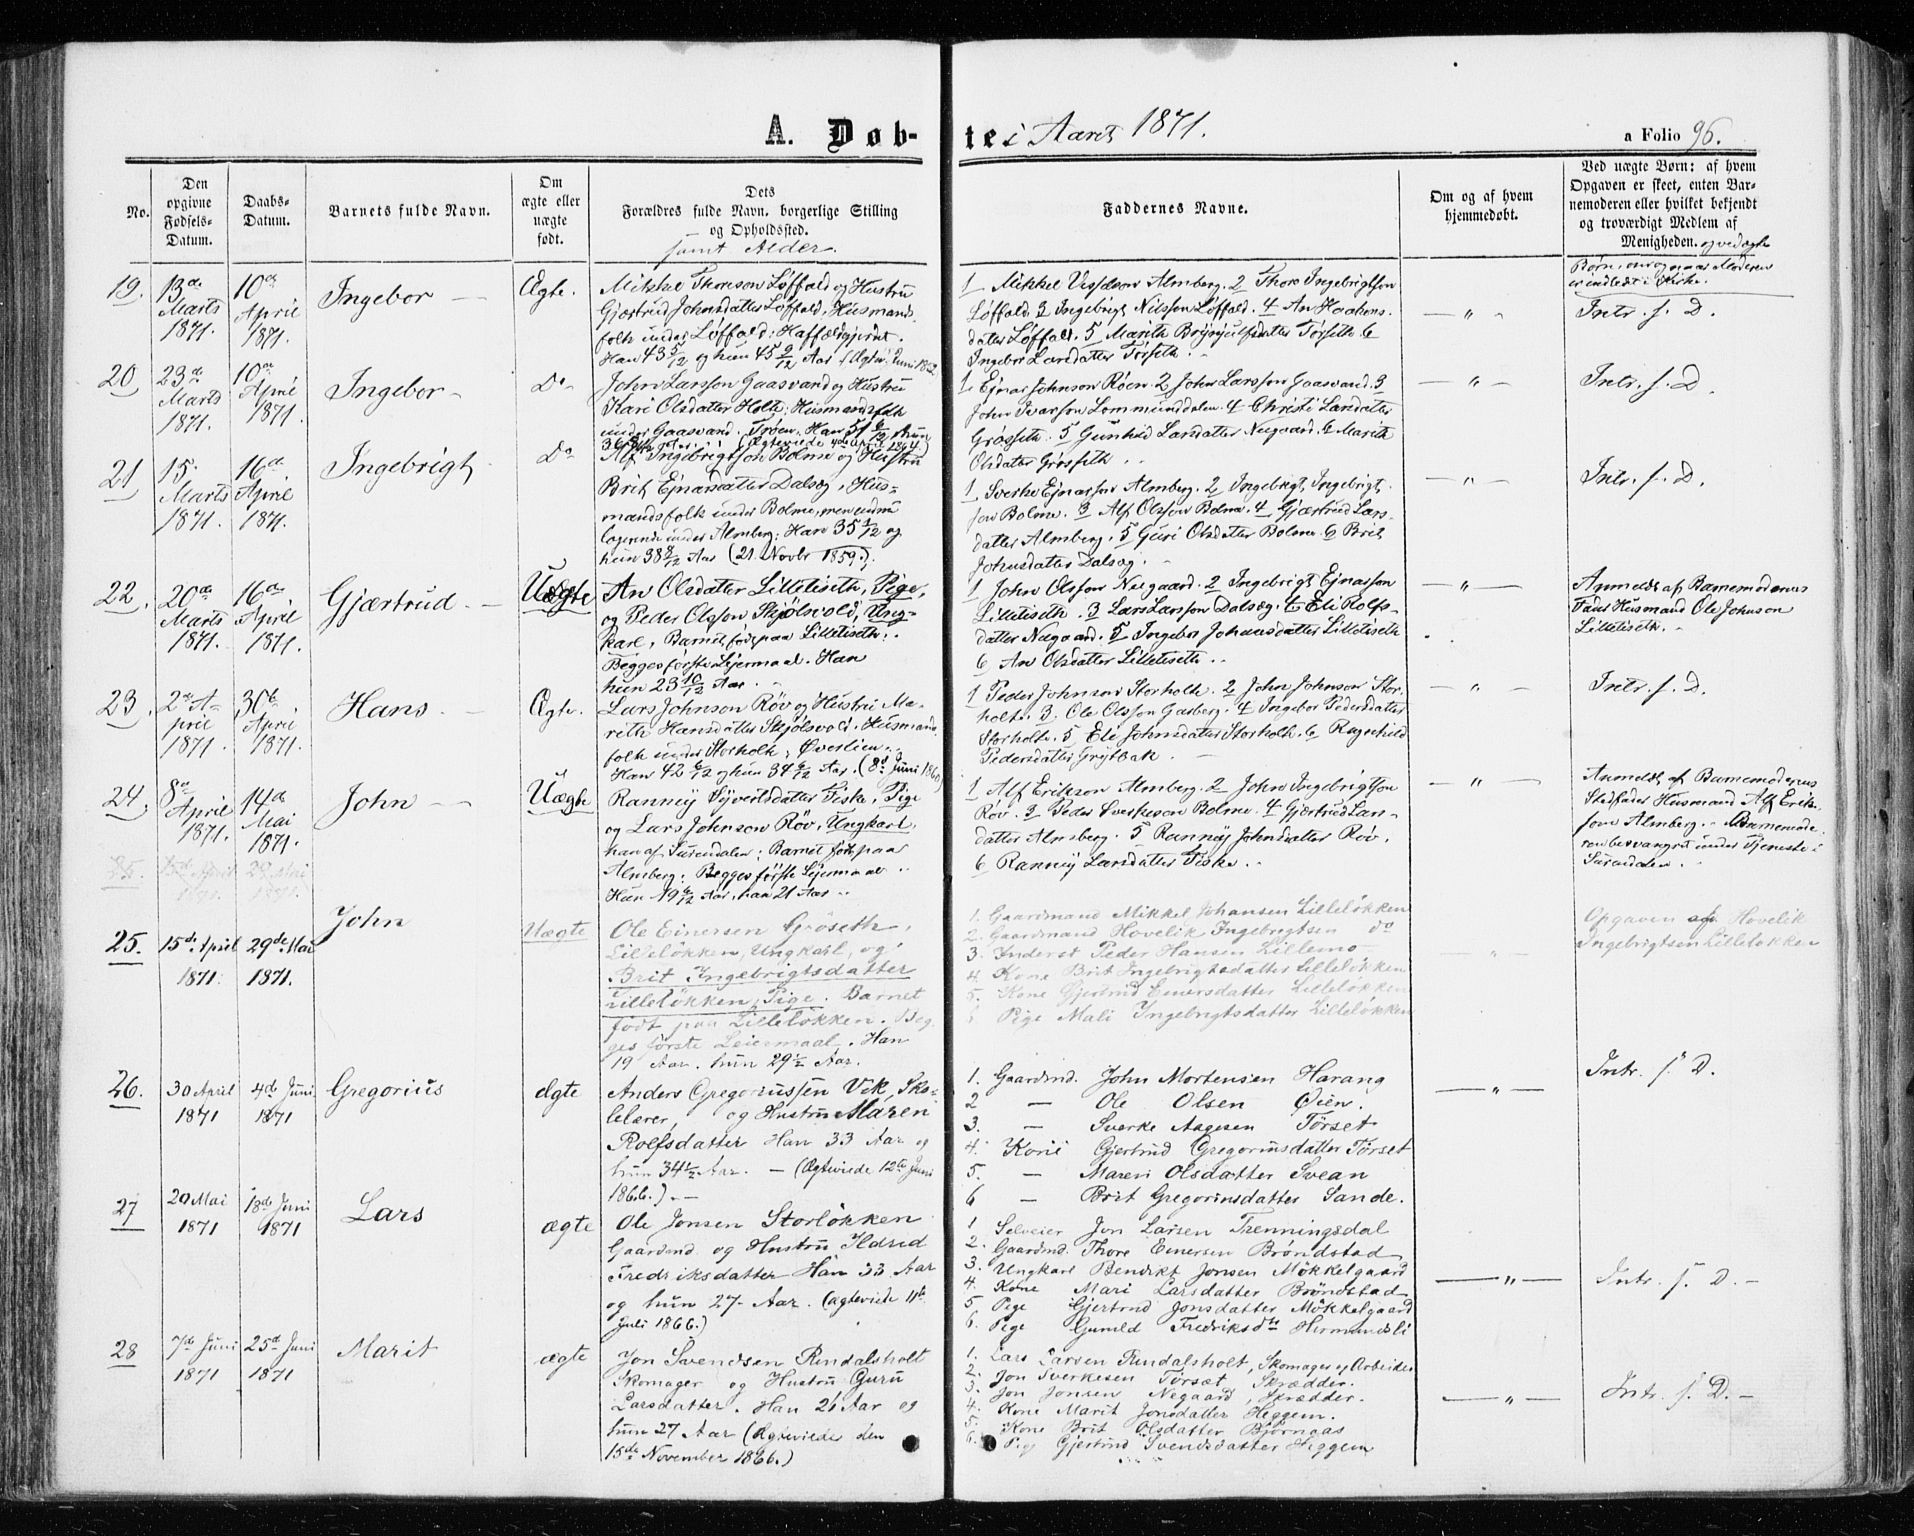 A. Døb-
te i Aaret 1871.
a Folio 96.
No.
Den
opgivne
Fødsels-
Datum.
Daabs-
Datum.
Barnets fulde Navn.
Om
ægte eller
uægte
født.
Dets
Forældres fulde Navn, borgerlige Stilling
og Opholdssted.
samt Alder.
Faddernes Navne.
Om og af hvem
hjemmedøbt.
Ved uægte Børn: af hvem
Opgaven er skeet, enten Bar-
nemoderen eller hvilket bekjendt
og troværdigt Medlem af
Menigheden. og ved ægte
Børn, om og naar Moderen
er indledt i Kirke.
19.
13de
Marts
1871.
10de
April
1871.
Ingebor
Ægte.
Mikkel Thoreson Løffald og Hustru
Gjærtrud Johnsdatter Løffald, Husmands
folk under Løffald:
Han 43 5/12 og hun 45 9/12 Aar
1. Mikkel Almberg. 2 Thore Ingebrigtson
Løffald 3 Ingebrigt Nilsson Løffald. 4 An Haakons-
datter Løffald. 5 Marith Brynjulfsdatter Tørseth 6
Ingebor Larsdatter Tørseth.
— " —
Intr. f. D.
20
23de
Marts
1871.
10de
April
1871.
Ingebor
Do
John Larsson Gaasvand og Hustru
Kari Olsdatter Holte, Husmandsfolk
under Gaasvand. Trøen. Han 51 6/12, hun
36 Aar (Ægteviede 4de April 1864)
1. Ejnar Johnson Røen. 2 John Larsson Gaasvand. 3
John Ivarsson Lommunddalen. 4 Christi Larsdatter
Grøsseth. 5 Gunhild Larsdatter Neegaard. 6 Marith
Olsdatter Grøsseth.
— " —
Intr. f. D.
21
15.
Marts
1871.
16de
April
1871.
Ingebrigt
Do
Alf Ingebrigtson Bolme og Hustru
Brit Ejnarsdatter Dalsæg, Hus-
mandsfolk under Bolme, men endnu
logerende under Almberg: Han 35 1/12 og
hun 38 8/12 Aar (21. Novbr 1859.)
1 Sverke Ejnarsson Almberg. 2 Ingebrigt Ingebrigt-
son Bolme. 3 Alf Olsson Bolme. 4 Gjærtrud Lars-
datter Almberg. 5 Guri Olsdatter Bolme. 6 Brit
Johnsdatter Dalsæg.
— " —
Intr. f. D.
22.
20de
Marts
1871.
16de
April
1871.
Gjærtrud
Uægte
An Olsdatter Lilletiseth, Pige,
og Peder Olsson Skjølsvold, Ung-
karl, Barnet født paa Lilletiseth.
Begges første Lejermaal. Han
hun 23 10/12 Aar.
1 John Olsson Neegaard. 2 Ingebrigt Ejnarsson
Lilletiseth. 3 Lars Larsson Dalsæg. 4 Eli Rolfs-
datter Neegaard. 5 Ingebor Johansdatter Lilletiseth
6 An Olsdatter Lilletiseth.
— " —
Anmeldt af Barnemoderens
Fader Husmand Ole Johnson
Lilletiseth.
23.
2den A-
pril
1871.
30te
April
1871.
Hans
Ægte.
Lars Johnson Røv og Hustru Ma-
reth Hansdatter Skjølsvold. Husmand
folk under Storholt, Øverlien.
Han 42 6/12 og hun 34 6/12 Aar. (8de Juni 1860)
1 Peder Johnson Storholt. 2 John Johnson Stor-
holt. 3. Ole Olsson Gasberg. 4 Ingebor Pedersdatter
Storholt. 5 Eli Johnsdatter Storholt. 6 Ragnhild
Pedersdatter Grytbak
— " —
Intr. f. D.
24.
8de
April
1871.
14de
Mai
1871.
John
Uægte
Ranney Syvertsdatter Fiske, Pige
og Lars Johnson Røv, Ungkarl,
han af Surendalen: Barnet født paa
Almberg: Begges første Lejermaal.
Hun 19 6/12 Aar, han 21 Aar
1 Alf Erikson Almberg. 2 John Ingebrigtson
Røv. 3 Peder Sverkeson Bolme. 4 Gjærtrud Lars-
datter Almberg. 5 Ranney Johnsdatter Røv.
6 Ranney Larsdatter Fiske.
— " —
Anmeldt af Barnemoderens
Stedfader Husmand Alf Erik-
son Almberg. Barnemode-
ren besvangret under Tjeneste i
Surendalen.
25.
15de April
1871.
29de Mai
1871.
John
Uægte
Ole Einersen Grøseth,
Lilleløkken, Ungkarl, og
Brit Ingebrigtsdatter
Lilleløkken, Pige. Barnet
født paa Lilleløkken. Beg-
ges første Leiermaal. Han
19 Aar. hun 29 1/2 Aar.
1. Gaardmand Mikkel Johansen Lilleløkken
2. Gaardmand Hovelik Ingebrigtsen do
3. Inderst Peder Hansen Lillemo
4. Kone Brit Ingebrigtsdatter Lilleløkken
5. Kone Gjertrud Einersdatter Lilleløkken
6 Pige Mali Ingebrigtsdatter Lilleløkken
— " —
Opgaven af Hovelik
Ingebrigtsen Lilleløkken
26.
30 April
1871
4de Juni
1871
Gregorius
ægte
Anders Gregoriussen Vik, Sko-
lelærer, og Hustru Maren
Rolfsdatter Han 33 Aar og
hun 34 1/2 Aar. — (Ægteviede 12te Juni
1866.)
1. Gaardmd. John Mortensen Harang
2 — Ole Olsen Øien.
3. — Sverke Aagesen Tørset
4. Kone Gjertrud Gregoriusdatter Tørset
5. — Maren Olsdatter Svean
6 — Brit Gregoriusdatter Sande.
— " —
Intr. f. D.
27
20 Mai
1871
18de Juni
1871
Lars
ægte
Ole Jonsen Storløkken
Gaardmd. og Hustru Ildrid
Fredriksdatter Han 33 Aar
og hun 27 Aar. (ægteviede 11te
Juli 1866.)
1 Selveier Jon Larsen Trenningsdal
2. Gaardmd. Thore Einersen Brøndstad
3. Ungkarl Bendikt Jonsen Møkkelgaard
4. Kone Mari Larsdatter Brøndstad
5. Pige Gjertrud Jonsdatter Møkkelgaard
6. Pige Gunild Fredriksdtr Hermundsli
— " —
Intr. f. D. —
28
7de Juni
1871
25de Juni
1871
Marit
ægte
Jon Svendsen Rindalsholt
Skomager og Hustru Guru
Larsdatter. Han 26 Aar og
hun 27 Aar (Ægteviede den
15de November 1866.)
1. Lars Larsen Rindalsholt, Skomager og Arbeider
2. Jon Sverkesen Tørset, Skrædder.
3. Jon Jonsen Negaard, Skrædder.
4. Kone Marit Jonsdatter Heggem.
5. Kone Brit Olsdatter Bjørnaas
6. Pige Gjertrud Svendsdatter Heggem
— " —
Intr. f. D. —